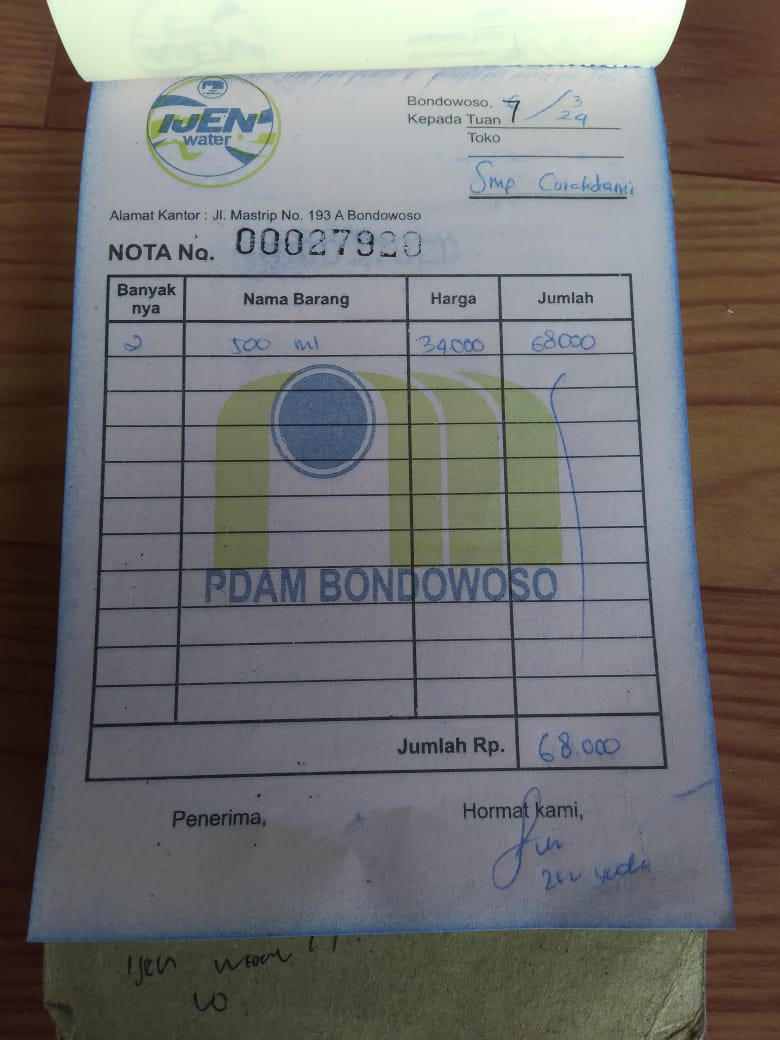 IJEN
water
Bondowoso, 7/3 24
Kepada Tuan
Toko
Smp Curahdami
Alamat Kantor : Jl. Mastrip No. 193 A Bondowoso
NOTA No. 00027920
Banyak nya Nama Barang Harga Jumlah
2 500 ml 34000 68000
PDAM BONDOWOSO
Jumlah Rp. 68.000
Penerima, Hormat kami,
Ijen